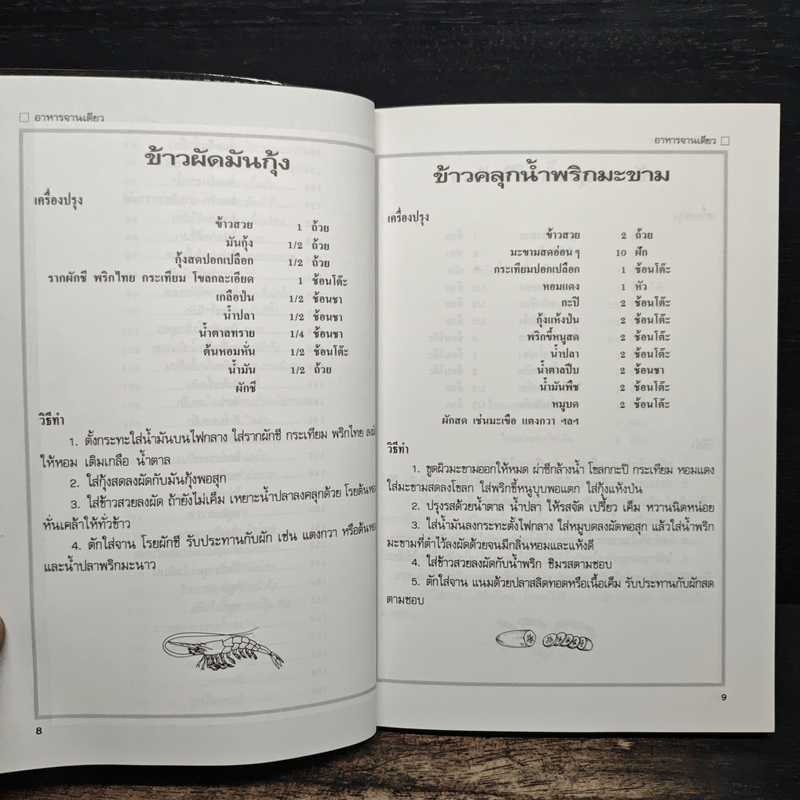 อาหารจานเดียว
ข้าวผัดมันกุ้ง
เครื่องปรุง
ข้าวสวย 1 ถ้วย
มันกุ้ง 1/2 ถ้วย
กุ้งสดปอกเปลือก 1/2 ถ้วย
รากผักชี พริกไทย กระเทียม โขลกละเอียด 1 ช้อนโต๊ะ
เกลือป่น 1/2 ช้อนชา
น้ำปลา 1/2 ช้อนชา
น้ำตาลทราย 1/4 ช้อนชา
ต้นหอมหั่น 1/2 ช้อนโต๊ะ
น้ำมัน 1/2 ถ้วย
ผักชี
วิธีทำ
1. ตั้งกระทะใส่น้ำมันบนไฟกลาง ใส่รากผักชี กระเทียม พริกไทย
ให้หอม เติมเกลือ น้ำตาล
2. ใส่กุ้งสดลงผัดกับมันกุ้งพอสุก
3. ใส่ข้าวสวยลงผัด ถ้ายังไม่เค็ม เหยาะน้ำปลาลงคลุกด้วย โรยต้นหอม
หั่นเคล้าให้ทั่วข้าว
4. ตักใส่จาน โรยผักชี รับประทานกับผัก เช่น แตงกวา หรือต้นหอม
และน้ำปลาพริกมะนาว
8
อาหารจานเดียว
ข้าวคลุกน้ำพริกมะขาม
เครื่องปรุง
ข้าวสวย 2 ถ้วย
มะขามสดอ่อน ๆ 10 ฝัก
กระเทียมปอกเปลือก 1 ช้อนโต๊ะ
หอมแดง 1 หัว
กะปิ 2 ช้อนโต๊ะ
กุ้งแห้งป่น 2 ช้อนโต๊ะ
พริกขี้หนูสด 2 ช้อนโต๊ะ
น้ำปลา 2 ช้อนโต๊ะ
น้ำตาลปีบ 2 ช้อนชา
น้ำมันพืช 2 ช้อนโต๊ะ
หมูบด 2 ช้อนโต๊ะ
ผักสด เช่นมะเขือ แตงกวา ฯลฯ
วิธีทำ
1. ขูดผิวมะขามออกให้หมด ผ่าซีกล้างน้ำ โขลกกะปิ กระเทียม หอมแดง
ใส่มะขามสดลงโขลก ใส่พริกขี้หนูบุบพอแตก ใส่กุ้งแห้งป่น
2. ปรุงรสด้วยน้ำตาล น้ำปลา ให้รสจัด เปรี้ยว เค็ม หวานนิดหน่อย
3. ใส่น้ำมันลงกระทะตั้งไฟกลาง ใส่หมูบดลงผัดพอสุก แล้วใส่น้ำพริก
มะขามที่ตำไว้ลงผัดด้วยจนมีกลิ่นหอมและแห้งดี
4. ใส่ข้าวสวยลงผัดกับน้ำพริก ชิมรสตามชอบ
5. ตักใส่จาน แนมด้วยปลาสลิดทอดหรือเนื้อเค็ม รับประทานกับผักสด
ตามชอบ
9